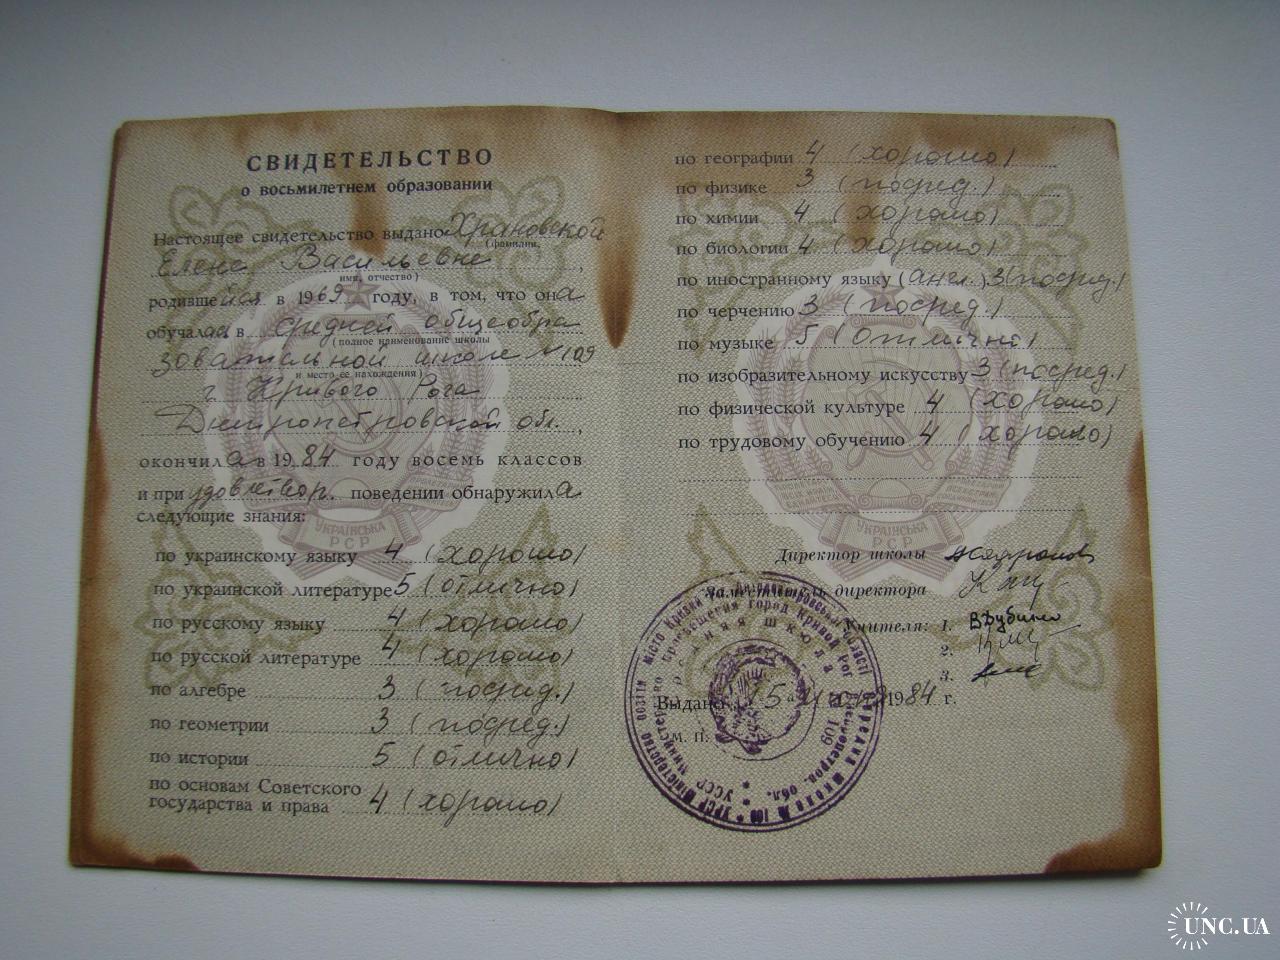 СВИДЕТЕЛЬСТВО
о восьмилетнем образовании
Настоящее свидетельство выдано Храновской
(фамилия,
Елене Васильевне
имя, отчество)
родившейся в 1969 году, в том, что она
обучалась в средней общеобра
(полное наименование школы
зовательной школе №109
и место ее нахождения)
г Кривого Рога
Днепропетровской обл.
окончила в 1984 году восемь классов
и при удовлетвор. поведении обнаружила
следующие знания:
по украинскому языку 4 (хорошо)
по украинской литературе 5 (отлично)
по русскому языку 4 (хорошо)
по русской литературе 4 (хорошо)
по алгебре 3 (посред.)
по геометрии 3 (посред.)
по истории 5 (отлично)
по основам Советского
государства и права 4 (хорошо)
УКРАЇНСЬКА
РСР
по географии 4 (хорошо)
по физике 3 (посред.)
по химии 4 (хорошо)
по биологии 4 (хорошо)
по иностранному языку (англ.) 3 (посред.)
по черчению 3 (посред.)
по музыке 5 (отлично)
по изобразительному искусству 3 (посред.)
по физической культуре 4 (хорошо)
по трудовому обучению 4 (хорошо)
УКРАЇНСЬКА
РСР
Директор школы
Заместитель директора
Учителя: 1.
2.
3.
Выдано 15 1984 г.
М. П.
UNC.UA